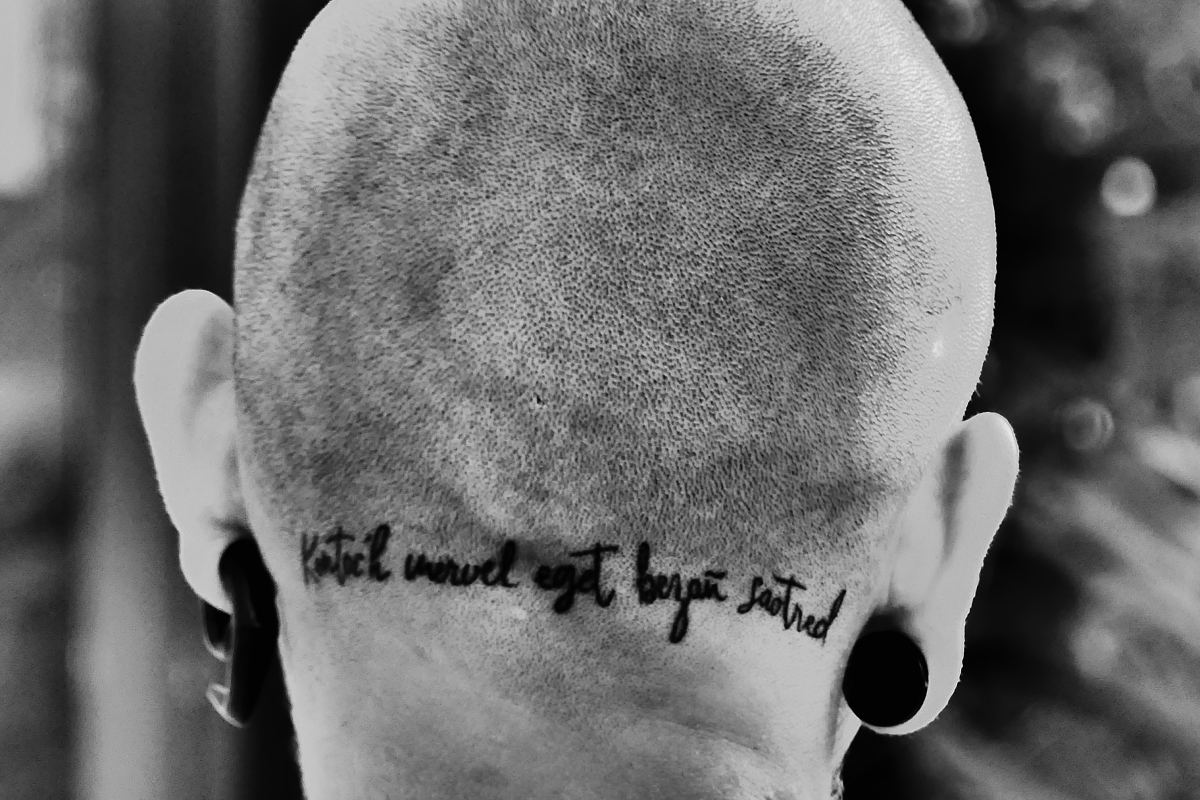 Kentoc'h mervel eget bezañ saotred